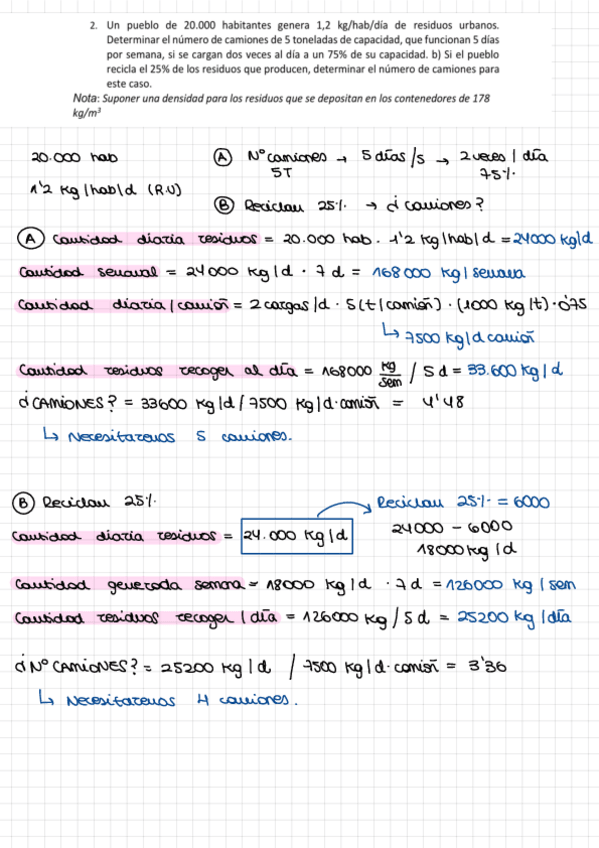 2. Un pueblo de 20.000 habitantes genera 1,2 kg/hab/día de residuos urbanos.
Determinar el número de camiones de 5 toneladas de capacidad, que funcionan 5 días
por semana, si se cargan dos veces al día a un 75% de su capacidad. b) Si el pueblo
recicla el 25% de los residuos que producen, determinar el número de camiones para
este caso.
Nota: Suponer una densidad para los residuos que se depositan en los contenedores de 178
kg/m³
20.000 hab
Ⓐ Nº camiones → 5 días/s → 2 veces / día
5T 75%
1'2 kg/hab/d (R.U)
Ⓑ Reciclan 25% → ¿ camiones?
Ⓐ Cantidad diaria residuos = 20.000 hab. 1'2 kg/hab/d = 24000 kg/d
Cantidad semanal = 24000 kg/d · 7 d = 168000 kg/semana
Cantidad diaria/camión = 2 cargas/d · 5(t/camión) · (1000 kg/t) · 0'75
↳ 7500 kg/d camión
Cantidad residuos recoger al día = 168000 kg/sem / 5 d = 33.600 kg/d
¿CAMIONES? = 33600 kg/d / 7500 kg/d·camión = 4'48
↳ Necesitaremos 5 camiones.
Ⓑ Reciclan 25%.
Reciclan 25% = 6000
Cantidad diaria residuos = 24.000 kg/d
24000 - 6000
18000 kg/d
Cantidad generada semana = 18000 kg/d · 7d = 126000 kg/sem
Cantidad residuos recoger/día = 126000 kg/5 d = 25200 kg/día
¿Nº CAMIONES? = 25200 kg/d / 7500 kg/d·camión = 3'36
↳ Necesitaremos 4 camiones.